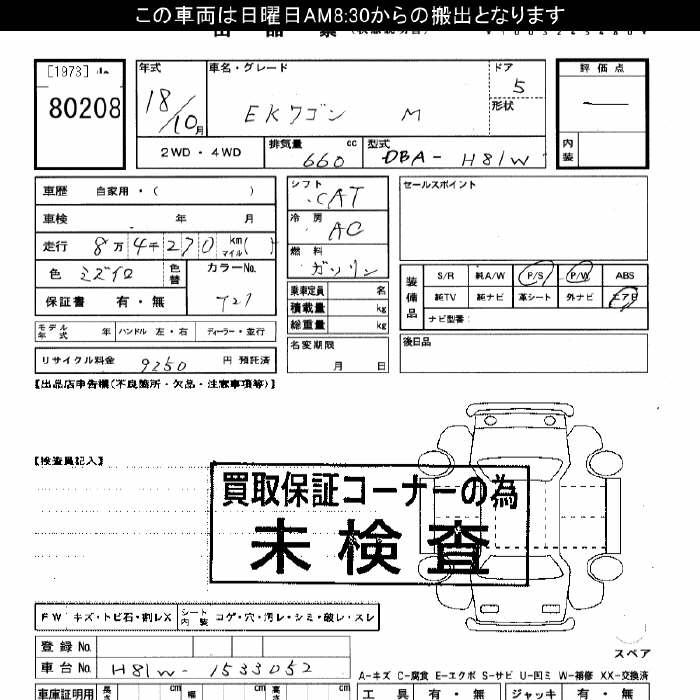 この車両は日曜日AM8:30からの搬出となります
[1973]
80208
年式
18/10月
車名・グレード
EKワゴン M
ドア
5
形状
評価点
内装
2WD・4WD
排気量 cc
660
型式
DBA-H81W
車歴 自家用・( )
車検 年 月
走行 8万4千270 km マイル ( )
色 ミズイロ 色替
カラーNo.
T27
保証書 有・無
シフト
CAT
冷房
AC
燃料
ガソリン
乗車定員 名
積載量 kg
総重量 kg
セールスポイント
装備品
S/R 純A/W P/S P/W ABS
純TV 純ナビ 革シート 外ナビ エアB
ナビ型番:
モデル年式 年 ハンドル 左・右 ディーラー・並行
リサイクル料金 9250 円 預託済
名変期限
月 日
後日品
【出品店申告欄(不良箇所・欠品・注意事項等)】
【検査員記入】
買取保証コーナーの為
未検査
FW キズ・トビ石・割レX
シート内装 コゲ・穴・汚レ・シミ・破レ・スレ
登録No.
車台No. H81W-1533052
スペア
A-キズ C-腐食 E-エクボ S-サビ U-凹ミ W-補修 XX-交換済
車庫証明用 長さ cm 幅 cm 高さ cm
工具 有・無 ジャッキ 有・無